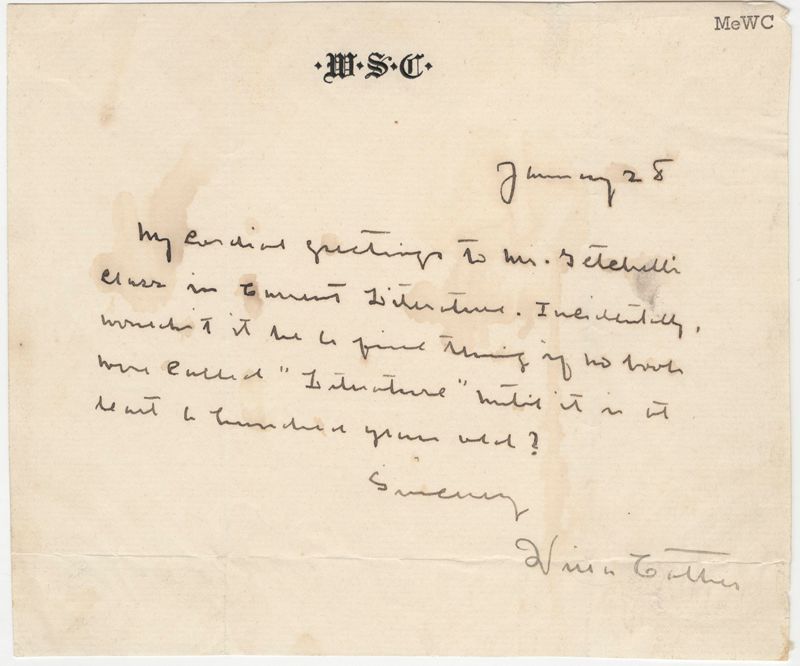 MeWC
·W·S·C·
January 28
My cordial greetings to Mr. Getchell's
class in Current Literature. Incidentally,
wouldn't it be a fine thing if no book
were called "Literature" until it is at
least a hundred years old?
Sincerely
Willa Cather